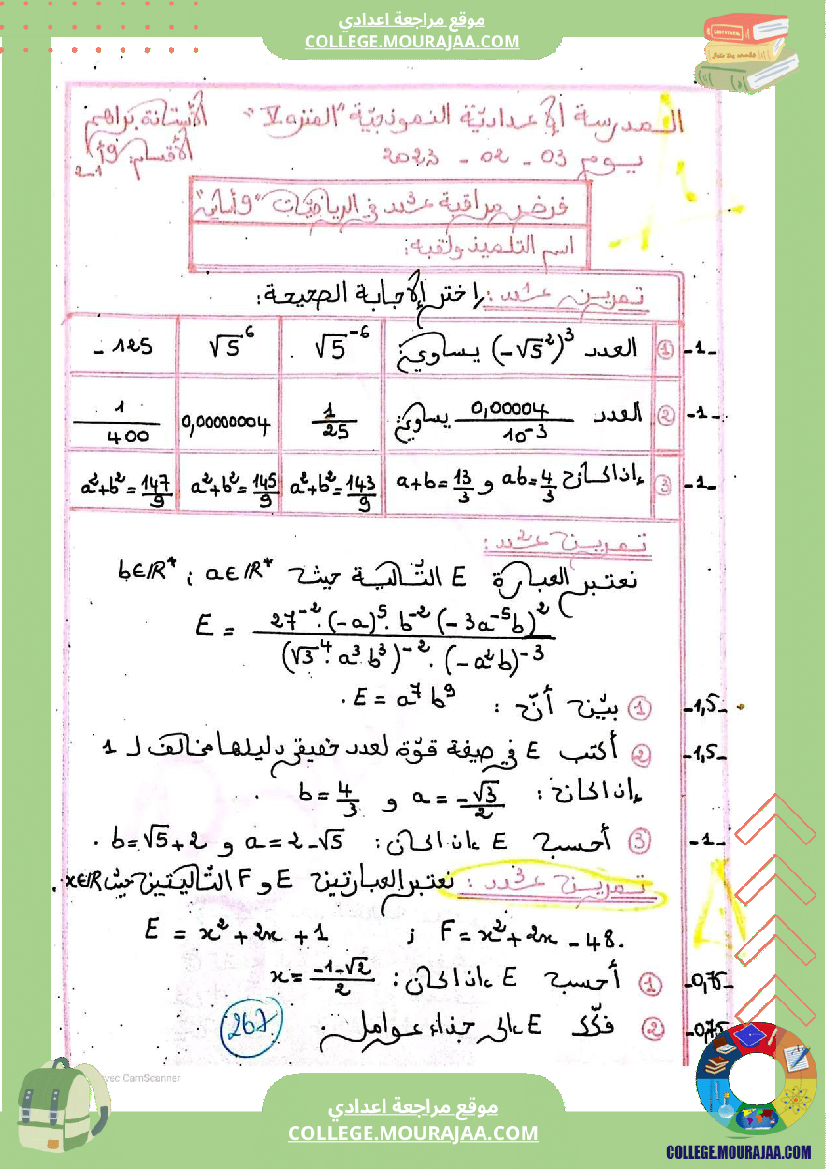 موقع مراجعة اعدادي
COLLEGE.MOURAJAA.COM
المدرسة الإعدادية النموذجية "المنزه V" الأستاذة براهم
يوم 03 - 02 - 2023 الأقسام: 9
فرض مراقبة عدد في الرياضيات "9 أساسي"
اسم التلميذ ولقبه:
تمرين عدد 1: اختر الإجابة الصحيحة:
-1- ① العدد (-√5²)³ يساوي √5⁻⁶ √5⁶ -125
-1- ② العدد 0,00004/10⁻³ يساوي 1/25 0,00000004 1/400
-1- ③ إذا كان ab=4/3 و a+b=13/3 a²+b²=143/9 a²+b²=145/9 a²+b²=147/9
تمرين عدد 2:
نعتبر العبارة E التالية حيث a∈IR* ; b∈IR*
E = 27⁻²·(-a)⁵·b⁻²(-3a⁻⁵b)² / (√3⁴·a³b³)⁻²·(-a²b)⁻³
-1,5- ① بيّن أنّ : E = a⁷b⁹.
-1,5- ② أكتب E في صيغة قوّة لعدد حقيقي دليلها مخالف لـ 1
إذا كان: a = -√3/2 و b = 4/3.
-1- ③ أحسب E إذا كان: a = 2-√5 و b = √5+2.
تمرين عدد 3: نعتبر العبارتين E و F التاليتين حيث x∈IR.
E = x²+2x+1 ; F = x²+2x-48.
-0,75- ① أحسب E إذا كان: x = -1-√2/2
-0,75- ② فكّك E إلى جذاء عوامل.
267
avec CamScanner
موقع مراجعة اعدادي
COLLEGE.MOURAJAA.COM
COLLEGE.MOURAJAA.COM